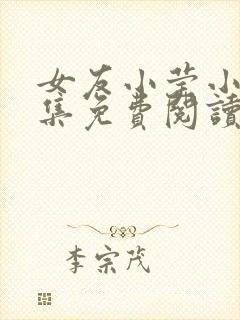 女友小莹小
集免費閱讀
李宗茂